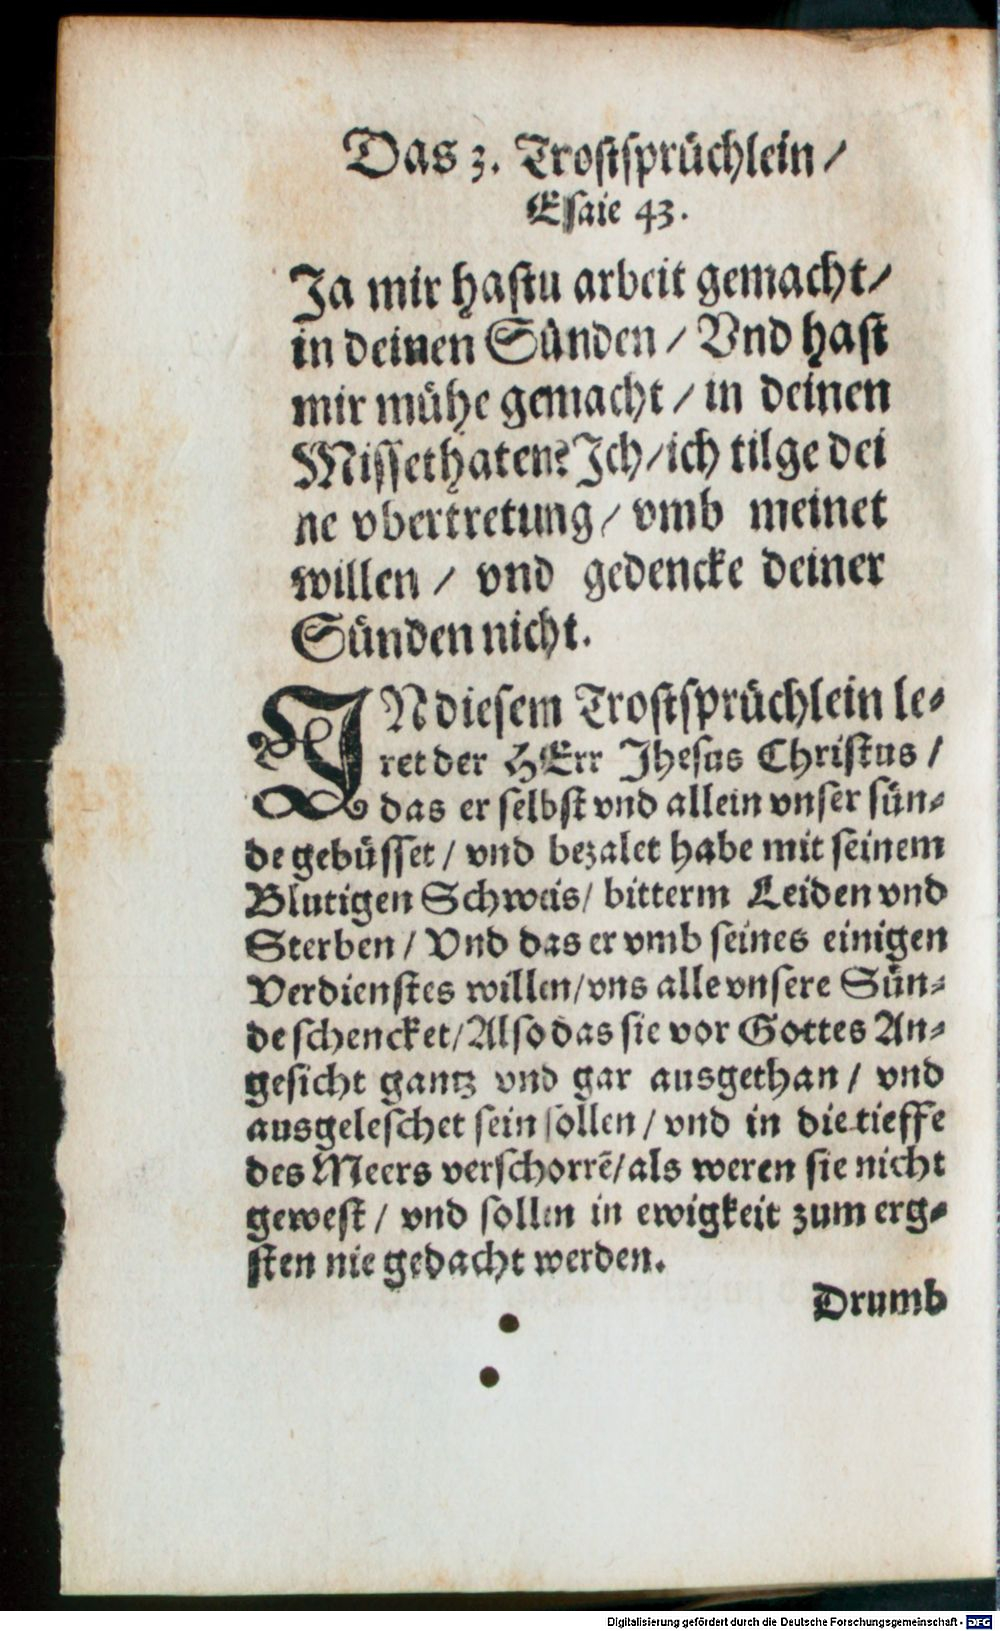 Das 3. Trostsprüchlein /
Esaie 43.
Ja mir hastu arbeit gemacht /
in deinen Sünden / Vnd hast
mir mühe gemacht / in deinen
Missethaten? Ich / ich tilge dei
ne vbertretung / vmb meinet
willen / vnd gedencke deiner
Sünden nicht.
IN diesem Trostsprüchlein le-
ret der HErr Jhesus Christus /
das er selbst vnd allein vnser sün-
de gebüsset / vnd bezalet habe mit seinem
Blutigen Schweis / bitterm Leiden vnd
Sterben / Vnd das er vmb seines einigen
Verdienstes willen / vns alle vnsere Sün-
de schencket / Also das sie vor Gottes An-
gesicht gantz vnd gar ausgethan / vnd
ausgeleschet sein sollen / vnd in die tieffe
des Meers verschorrē / als weren sie nicht
gewest / vnd sollen in ewigkeit zum erg-
sten nie gedacht werden.
Drumb
Digitalisierung gefördert durch die Deutsche Forschungsgemeinschaft - DFG